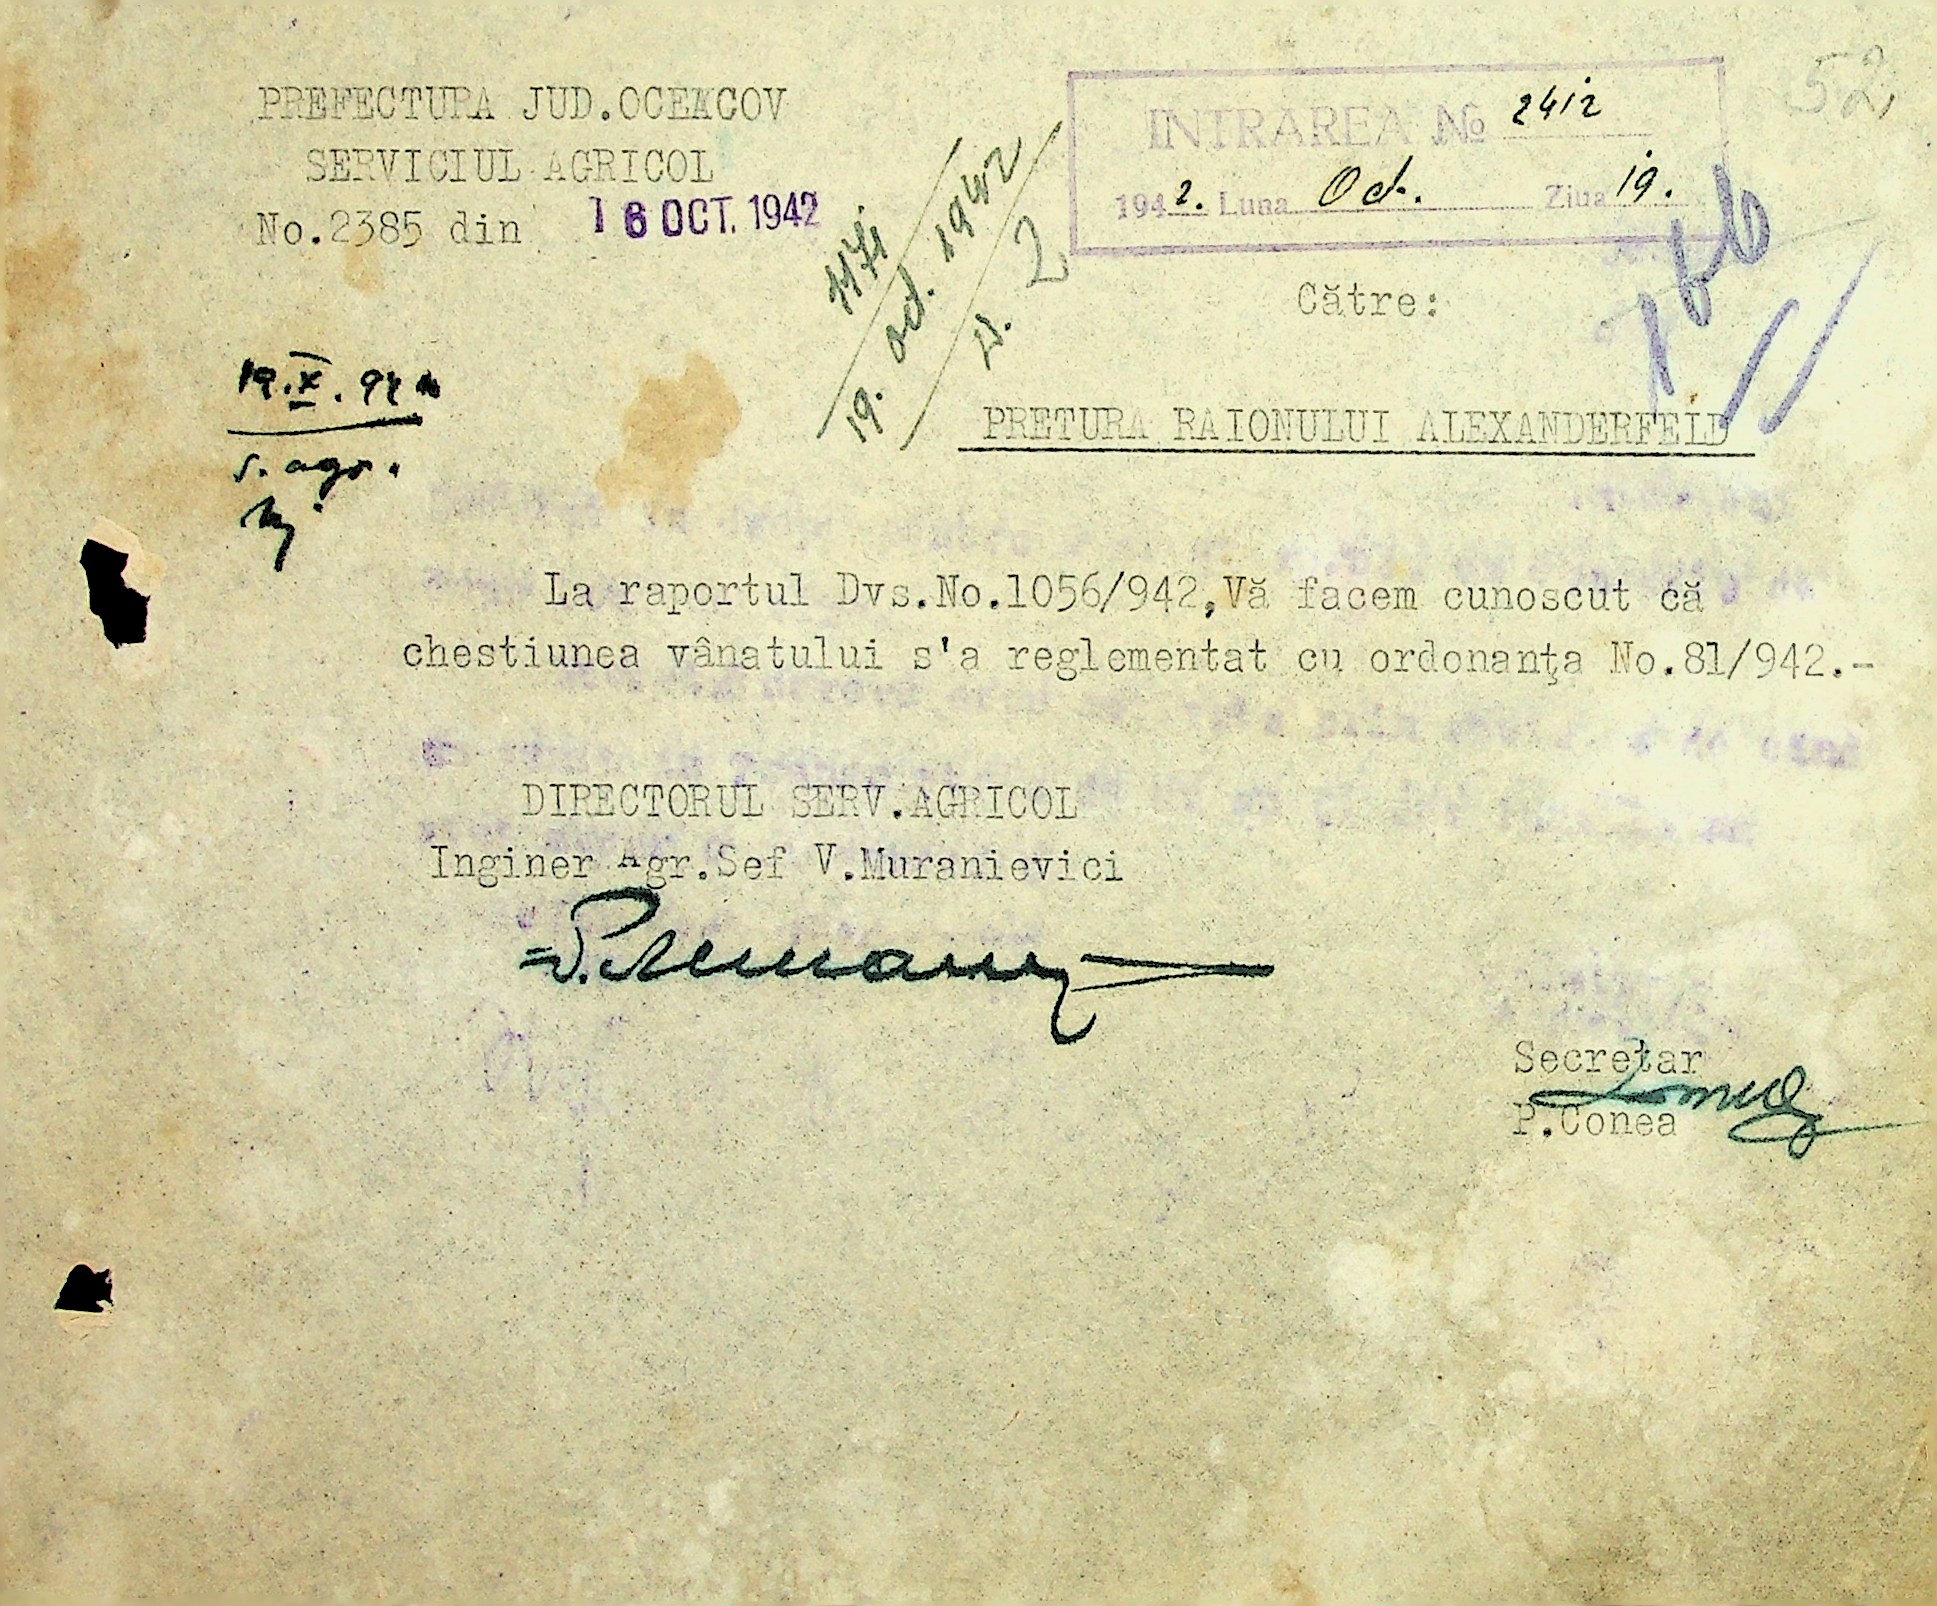 PREFECTURA JUD.OCEACOV
SERVICIUL AGRICOL
No.2385 din 16 OCT. 1942
INTRAREA № 2412
1942. Luna Oct. Ziua 19.
52
1171
19. oct. 1942
s. 2
19.X.942
s. agr.
Către:
PRETURA RAIONULUI ALEXANDERFELD
La raportul Dvs.No.1056/942,Vă facem cunoscut că
chestiunea vânatului s'a reglementat cu ordonanţa No.81/942.-
DIRECTORUL SERV.AGRICOL
Inginer Agr.Sef V.Muranievici
Secretar
P.Conea